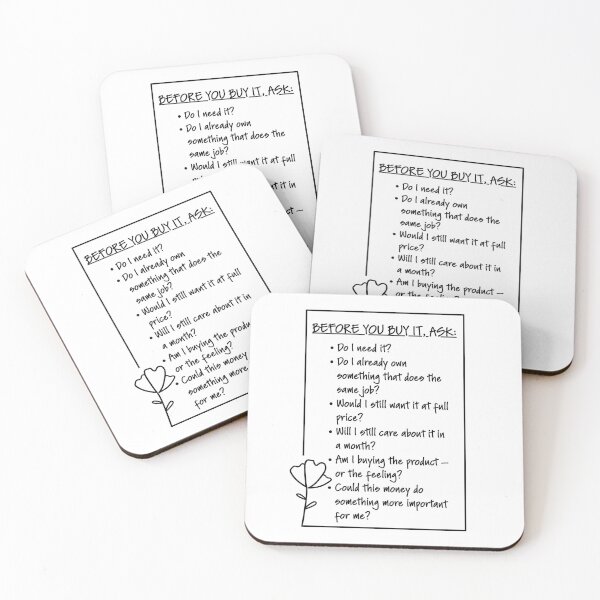 BEFORE YOU BUY IT, ASK:
• Do I need it?
• Do I already own
something that does the
same job?
• Would I still want it at full
it in
BEFORE YOU BUY IT, ASK:
• Do I need it?
• Do I already own
something that does the
same job?
• Would I still want it at full
price?
• Will I still care about it in
a month?
• Am I buying the product —
or the feeling?
BEFORE YOU BUY IT, ASK:
• Do I need it?
• Do I already own
something that does the
same job?
• Would I still want it at full
price?
• Will I still care about it in
a month?
• Am I buying the product
or the feeling?
• Could this money do
something more
for me?
BEFORE YOU BUY IT, ASK:
• Do I need it?
• Do I already own
something that does the
same job?
• Would I still want it at full
price?
• Will I still care about it in
a month?
• Am I buying the product —
or the feeling?
• Could this money do
something more important
for me?